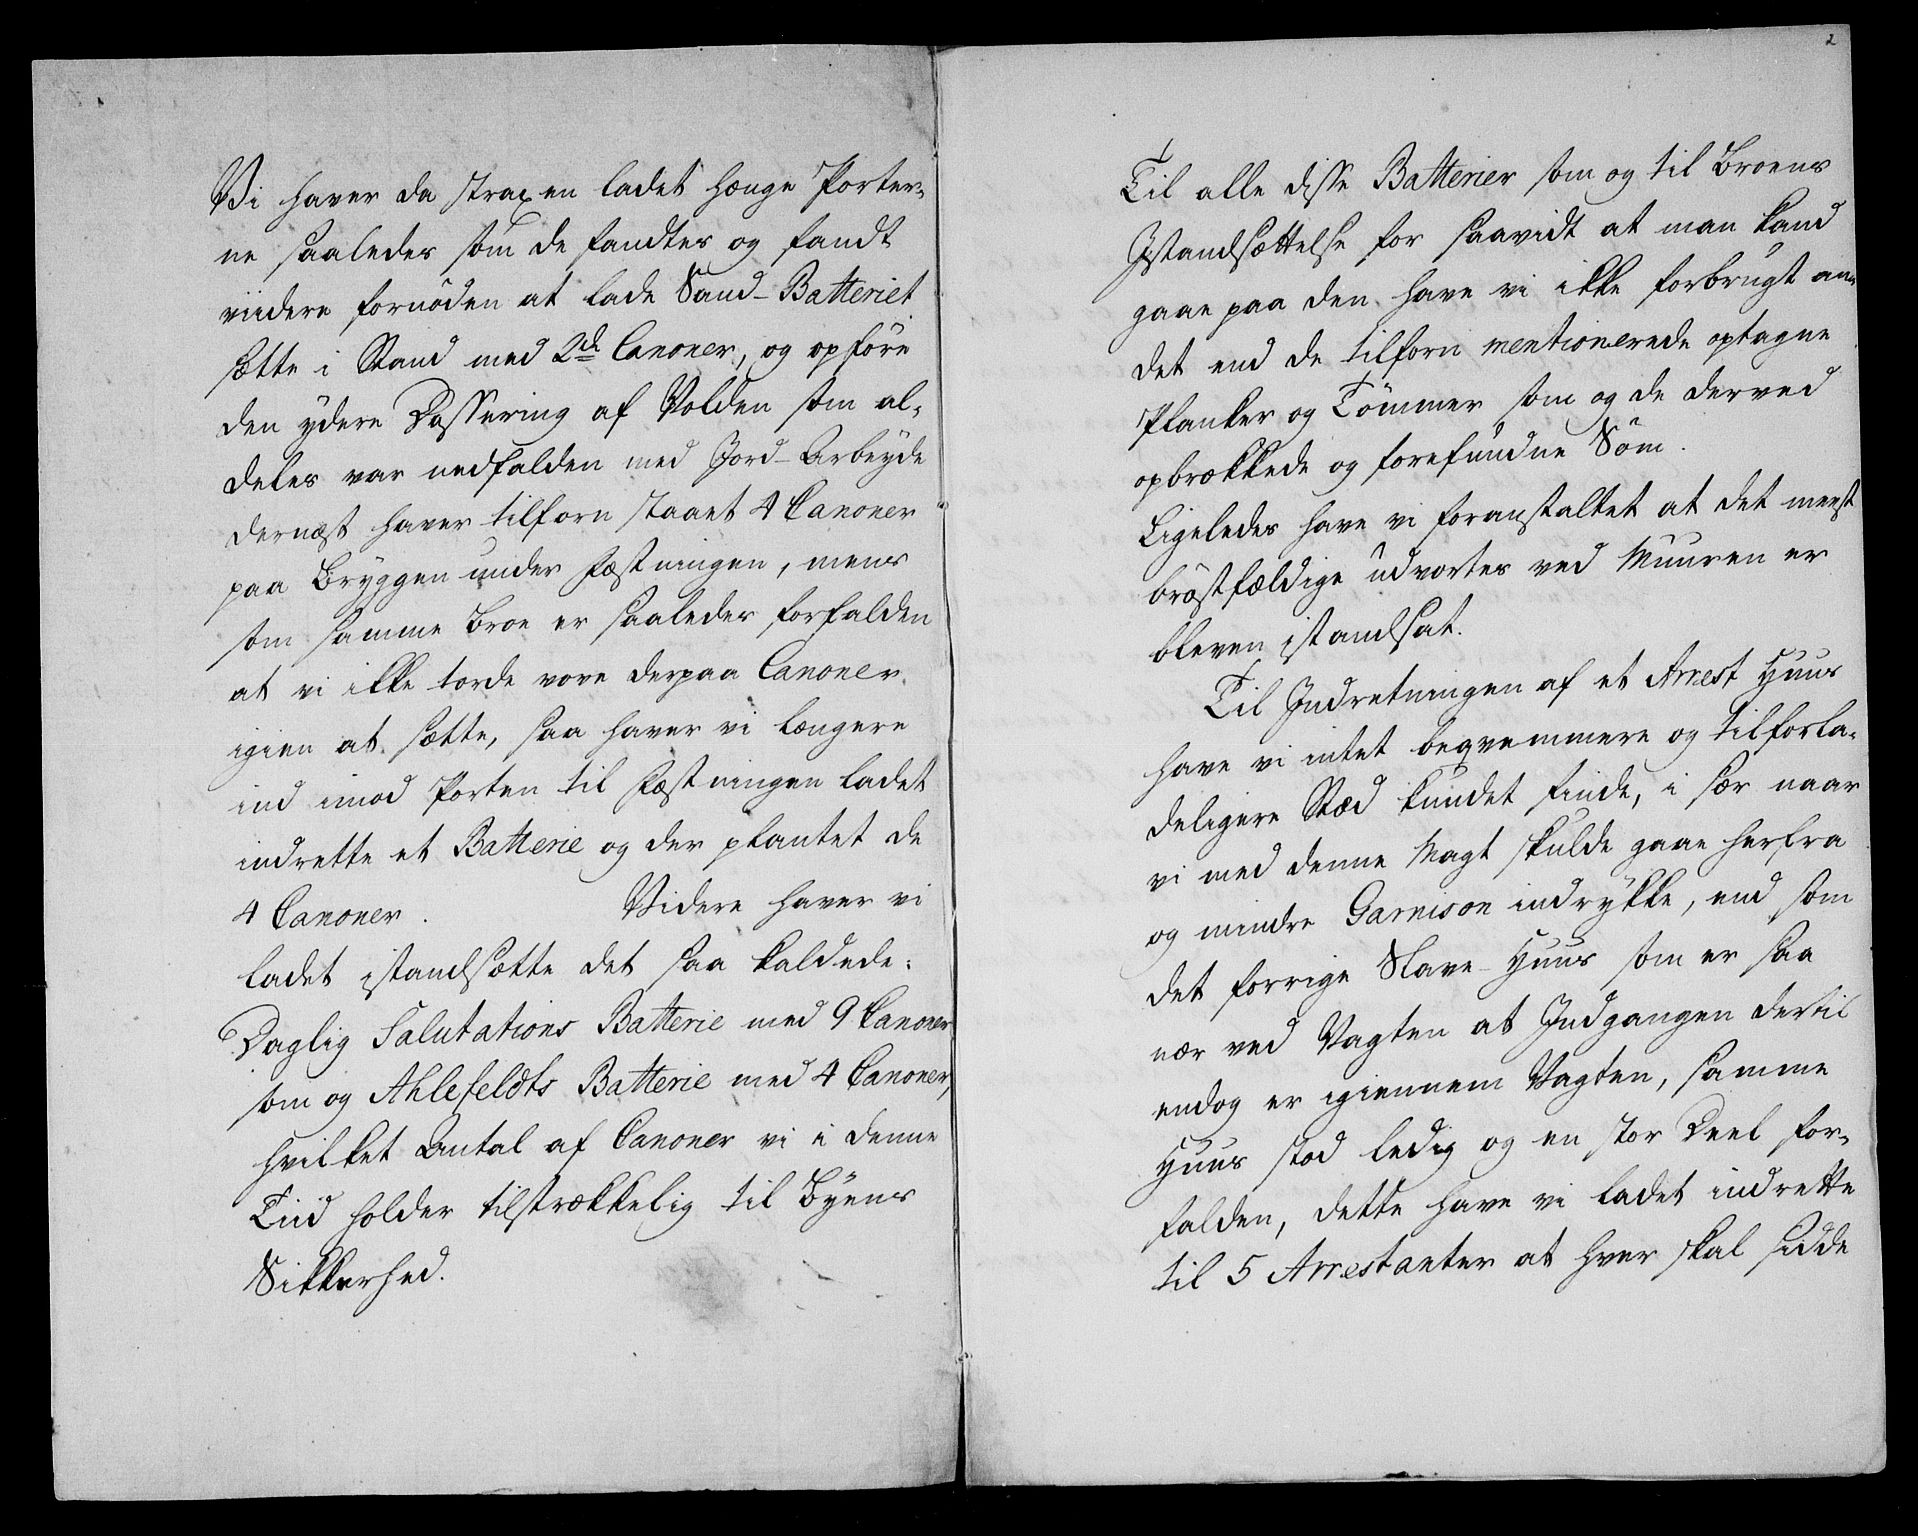 Vi haver da straxen ladet hænge Porter-
ne saaledes som de fandtes og fandt
viidere fornöden at lade Sand-Batteriet
sætte i Stand med 2de Canoner, og opföre
den ydere Dossering af Volden som al-
deles var nedfalden med Jord-Arbeyde
dernæst haver tilforn staaet 4 Canoner
paa Bryggen under Fæstningen, mens
som samme Broe er saaledes forfalden
at vi ikke torde vove derpaa Canoner
igien at sætte, saa haver vi længere
ind imod Porten til Fæstningen ladet
indrette et Batterie og der plantet de
4 Canoner. Videre haver vi
ladet istandsætte det saa kaldede:
Daglig Salutations Batterie med 9 Canoner
som og Ahlefeldts Batterie med 4 Canoner,
hvilket Antal af Canoner vi i denne
Tiid holder tilstrækkelig til Byens
Sikkerhed.
2
Til alle disse Batterier som og til Broens
Istandsættelse for saavidt at man kand
gaae paa den have vi ikke forbrugt an-
det end de tilforn mentionerede optagne
Planker og Tömmer som og de derved
opbrækkede og forefundne Söm.
Ligeledes have vi foranstaltet at det meest
bröstfældige udvortes ved Muuren er
bleven istandsat.
Til Indretningen af et Arrest Huus
have vi intet beqvemmere og tilforla-
deligere Stæd kundet finde, i sær naar
vi med denne Magt skulde gaae herfra
og mindre Garnison indrykke, end som
det forrige Slave-Huus som er saa
nær ved Vagten at Indgangen dertil
endog er igiennem Vagten, samme
Huus stod ledig og en stor Deel for-
falden, dette have vi ladet indrette
til 5 Arrestanter at hver skal sidde